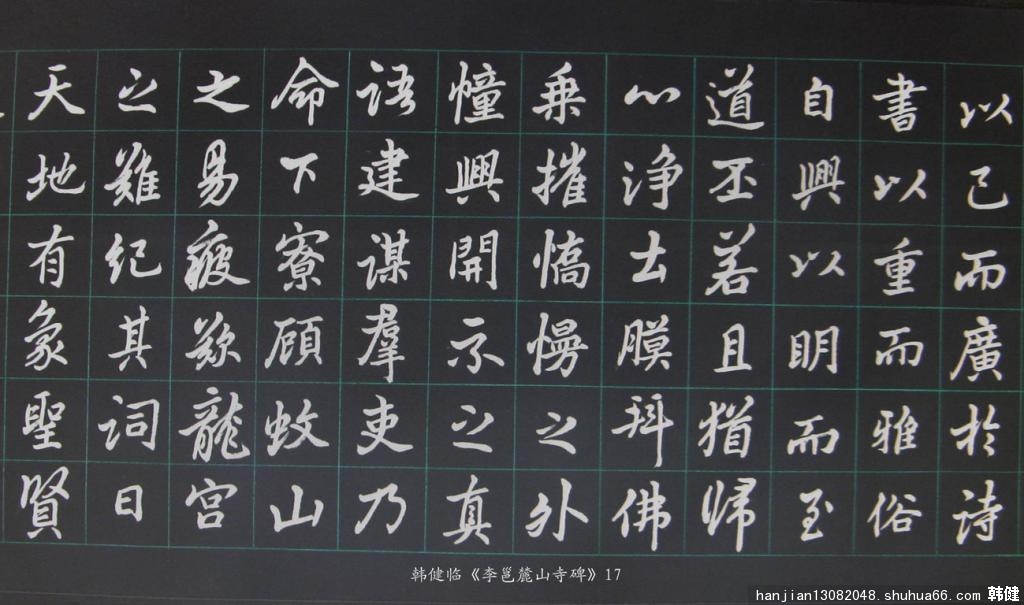 以己而廣於詩
書以重而雅俗
自興以明而至
道丕若且猶歸
心淨土膜拜佛
乘摧憍慢之外
幢興開示之真
語建謀羣吏乃
命下寮顧蚊山
之易疲歎龍宮
之難紀其詞曰
天地有象聖賢
韩健临《李邕麓山寺碑》17
hanjian13082048.shuhua66.com 韩健